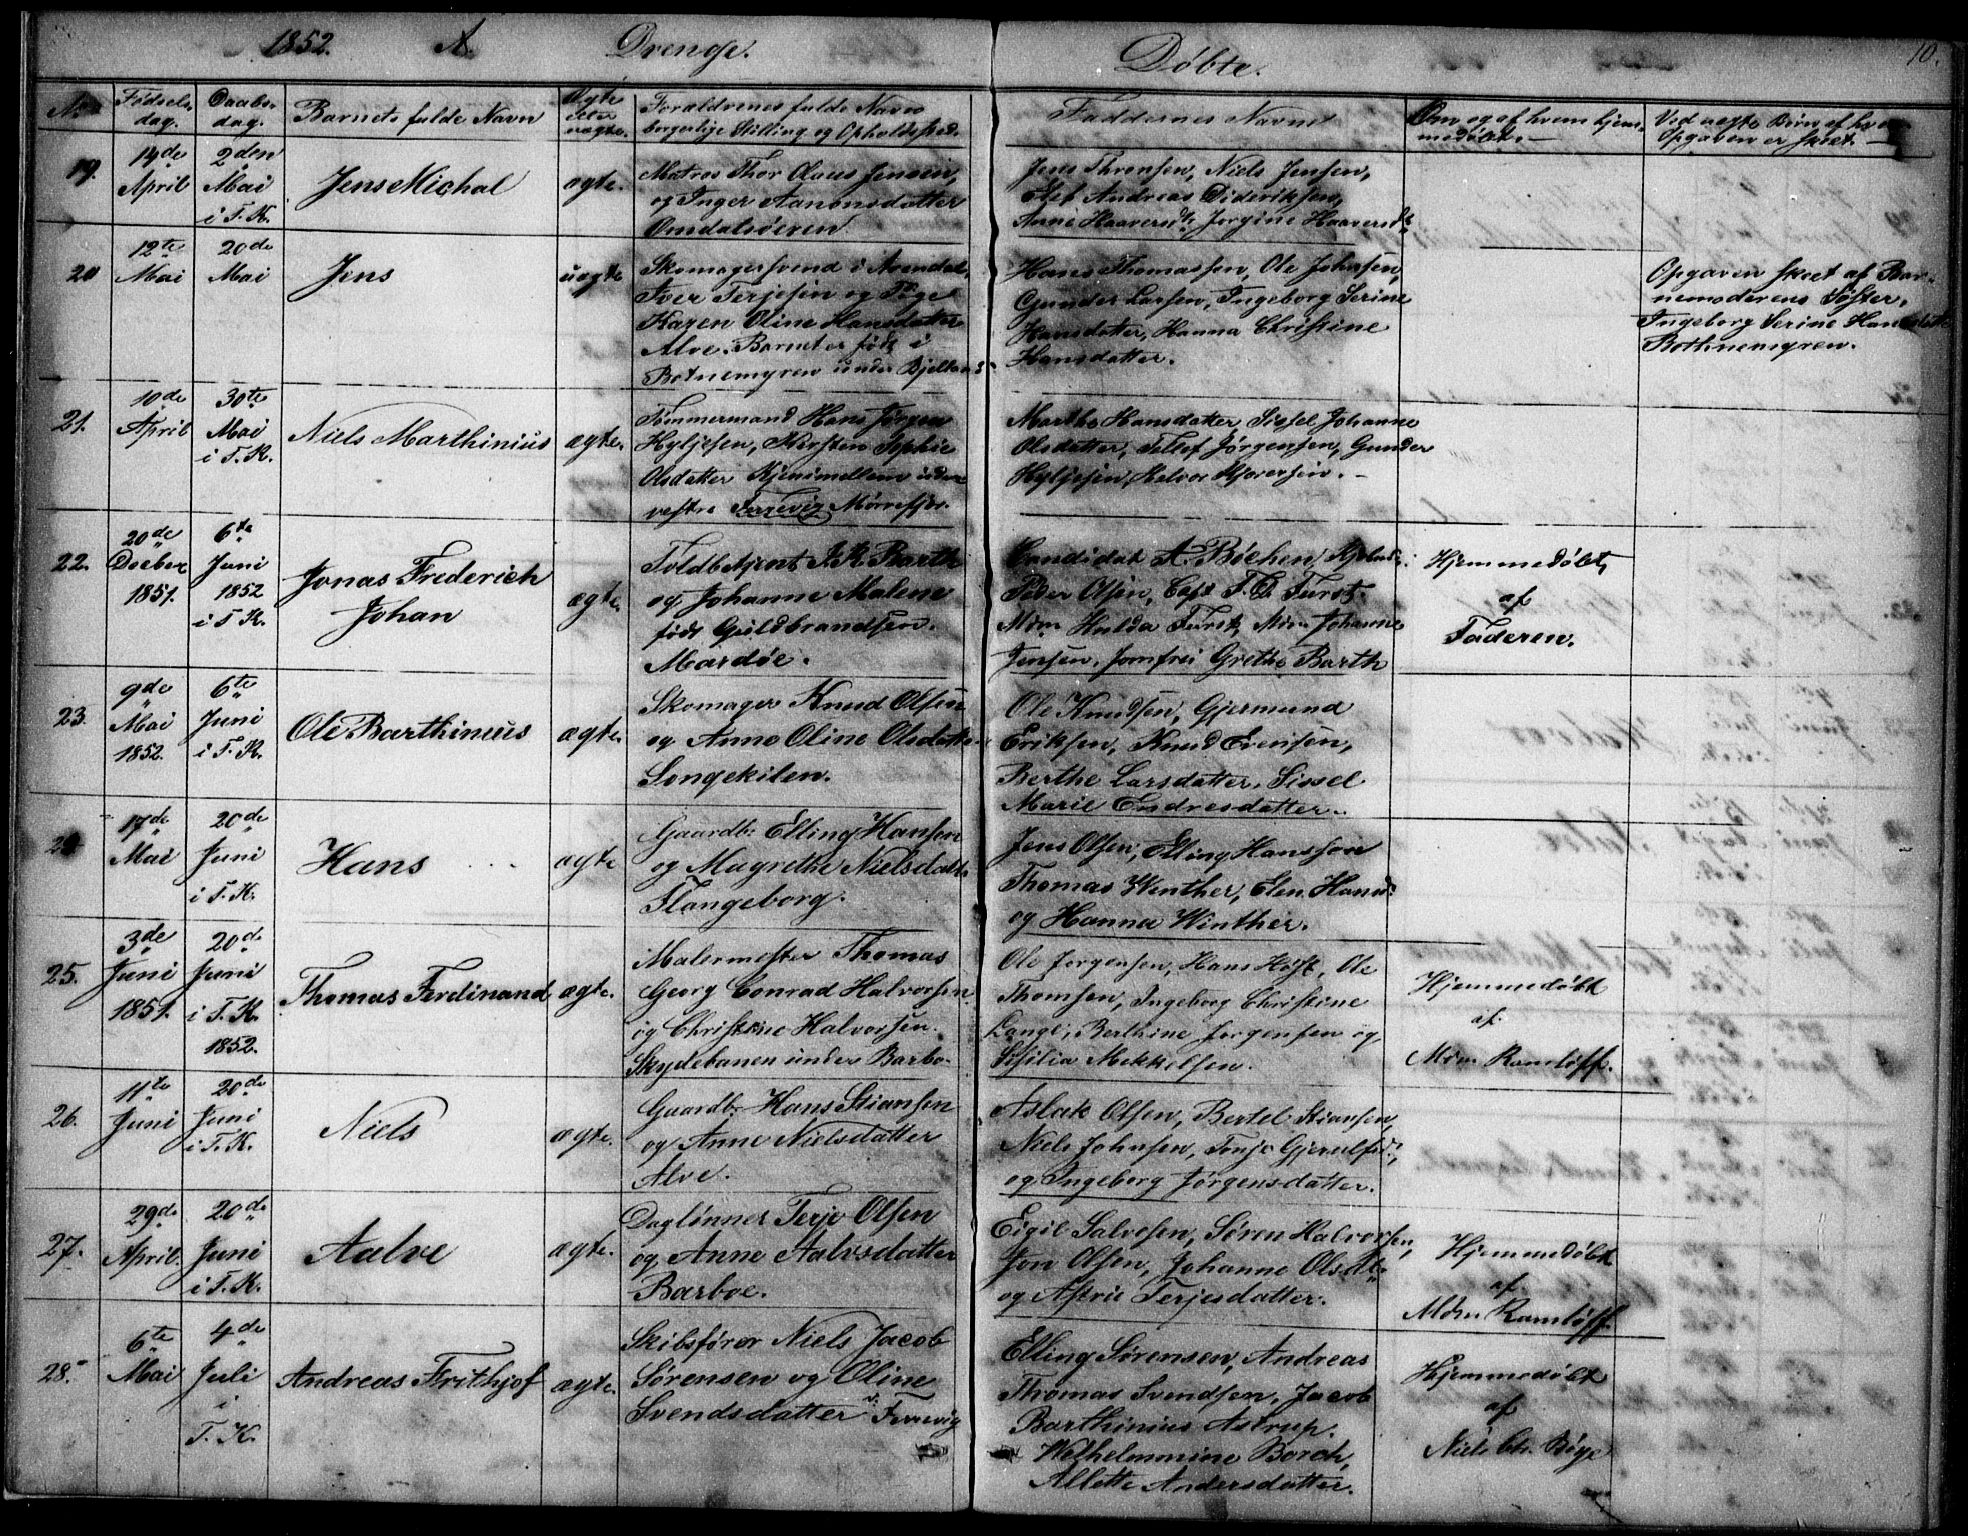 1852. A. Drenge. Døbte. 10.
No
Fødsels-
dag.
Daabs-
dag.
Barnets fulde Navn
Ægte
eller
uægte.
Forældrenes fulde Navn
borgerlige Stilling og Opholdssted.
Faddernes Navne
Om og af hvem hjem-
medøbt.
Ved uægte Børn af hvem
Opgaven er skeet.
19.
14de
April
2den
Mai
i T. K.
Jens Michal
ægte.
Matros Thor Olaus Jensen,
og Inger Aanonsdatter
Omdalsøeren
Jens Thronsen, Niels Jensen,
Elef Andreas Dideriksen,
Anne Haaversdt, Jorgine Haaversdt
20
12te
Mai
20de
Mai
Jens
uægte
Skomagersvend i Arendal,
Iver Terjesen og Pige
Karen Oline Hansdatter
Alve. Barnet er født i
Botnemyren under Bjelland
Hans Thomassen, Ole Johnsen,
Gunder Larsen, Ingeborg Serine
Hansdatter, Hanna Christine
Hansdatter.
Opgaven skeet af Bar-
nemoderens Søster,
Ingeborg Serine Hansdatter
Bothnemyren.
21.
10de
April
30te
Mai
i T. K.
Niels Marthinius
ægte.
Tømmermand Hans Jørgen
Hyljesen, Kirsten Sophie
Olsdatter Kjenimellem under
vestre Færevig Mørrefjær.
Marthe Hansdatter, Sissel Johanne
Olsdatter, Tellef Jørgensen, Gunder
Hyljesen, Halvor
22.
20de
Decbер
1851.
6te
Juni
1852
i T. K.
Jonas Frederich
Johan
ægte.
Toldbetjent J. R. Barth
og Johanne Malene
født Guldbrandsen.
Mardøe.
Candidat A. Bøchen,
Peder Olsen, Capt. F. C. Furst.
Mdm Hulda Furst, Mdm Johanne
Jensen, Jomfru Grethe Barth
Hjemmedøbt,
af
Faderen.
23.
9de
Mai
1852.
6te
Juni
i T. K.
Ole Barthinius
ægte.
Skomager Knud Olsen
og Anne Oline Olsdatter
Songekilen.
Ole Knudsen, Gjermund
Eriksen, Knud Evensen,
Berthe Larsdatter, Sissel
Marie Endresdatter.
24
17de
Mai
20de
Juni
i T. K.
Hans
ægte
Gaardbr. Elling Hansen
og Magrethe Nielsdatt.
Flangeborg.
Jens Olsen, Elling Hansson
Thomas Winther, Elen Hansd:
og Hanna Winther.
25.
3de
Juni
1851.
20de
Juni
i T. K.
1852.
Thomas Ferdinand
ægte.
Malermester Thomas
Georg Conrad Halvorsen
og Christine Halvorsen.
Skydebanen under Barbo.
Ole Jorgensen, Hans Høst, Ole
Thomsen, Ingeborg Christine
Lange, Berthine Jorgensen og
Sisilia Mekkelsen.
Hjemmedøbt
af
Mdm Ramløff.
26.
11te
Juni
20de
Juni
i T. K.
Niels
ægte.
Gaardbr. Hans Stiansen
og Anne Nielsdatter
Alve.
Aslak Olsen, Bertel Stiansen,
Niels Johnsen, Tonje Gjerulfsd:,
og Ingeborg Jørgensdatter.
27.
29de
April.
20de
Juni
i T. K.
Aalve
ægte.
Daglønner Terje Olsen
og Anne Aalvsdatter
Barboe.
Eigil Salvesen, Søren Halvorsen,
Jon Olsen, Johanne Olsdt
og Astrie Terjesdatter.
Hjemmedøbt
af
Mdm Ramløff.
28.
6te
Mai
4de
Juli
i
T. K.
Andreas Frithjof
ægte.
Skibsfører Niels Jacob
Sørensen og Oline
Svendsdatter v. Færevig
Elling Sørensen, Andreas
Thomas Svendsen, Jacob
Barthinius Astrup.
Wilhelmmine Borch,
Allette Andersdatter.
Hjemmedøbt
af
Niels Ch. Bøye